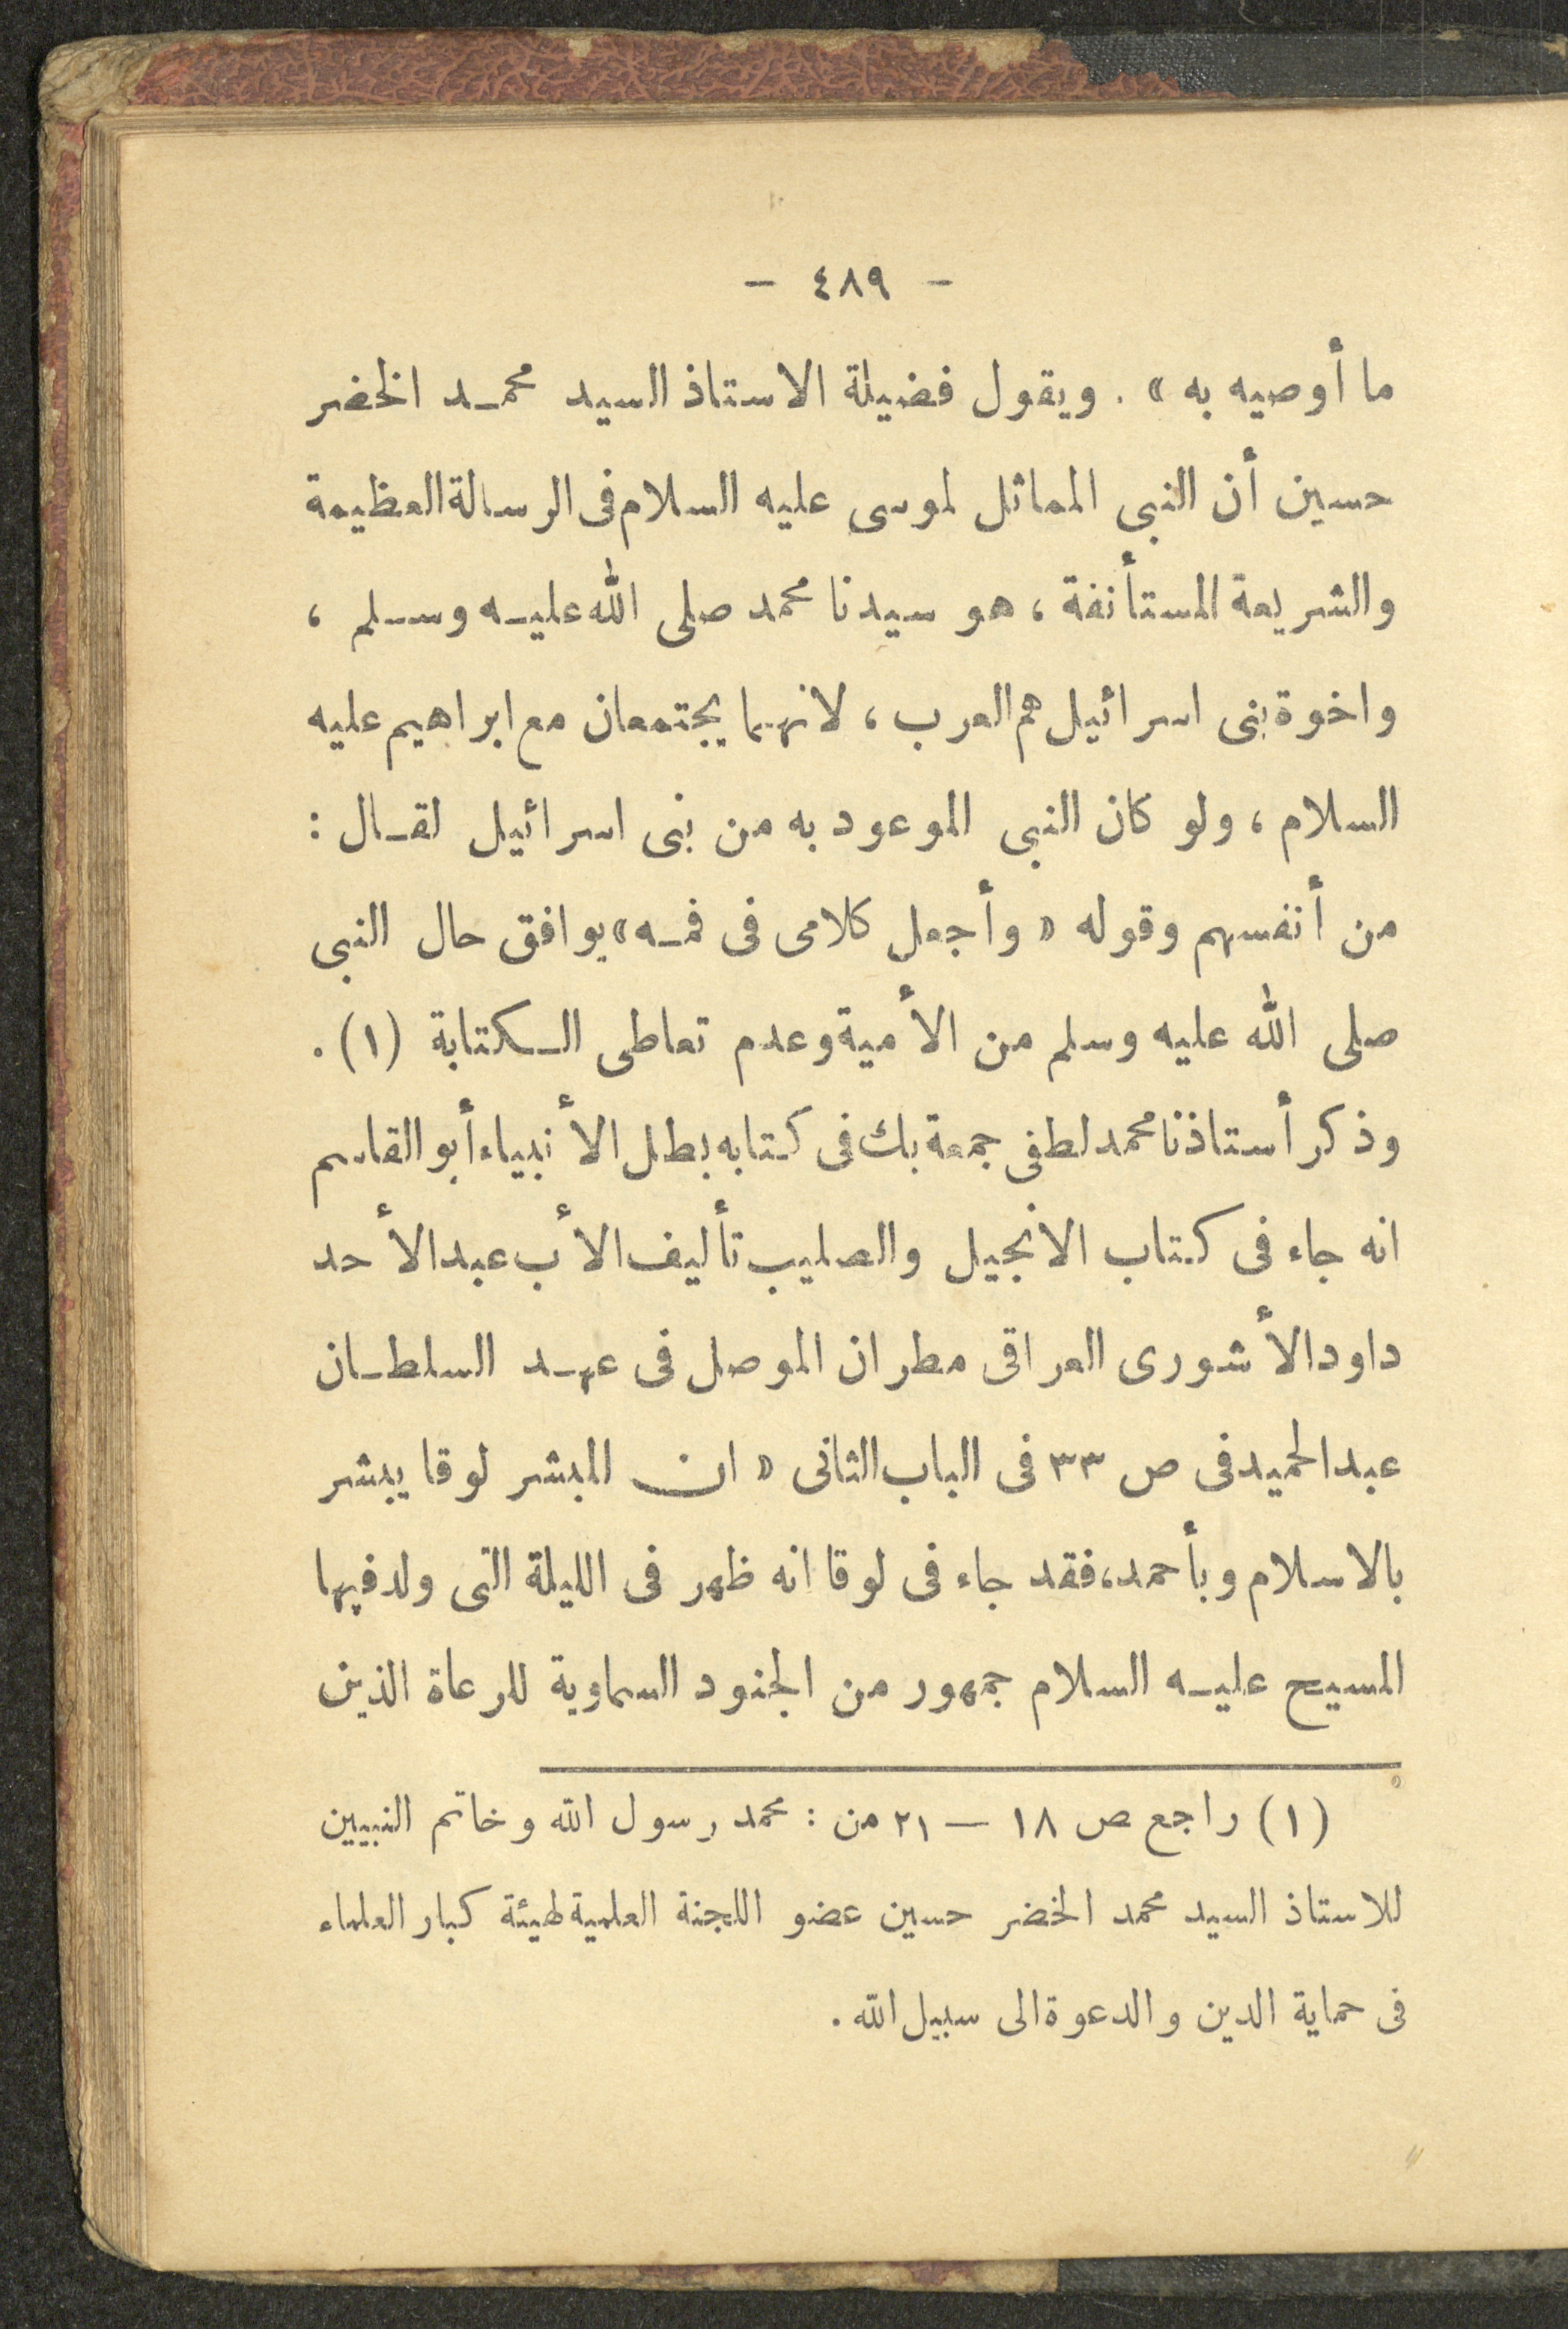 - ٤٨٩ -
ما أوصيه به » . ويقول فضيلة الاستاذ السيد محمد الخضر
حسين أن النبى المماثل لموسى عليه السلام فى الرسالة العظيمة
والشريعة المستأنفة ، هو سيدنا محمد صلى الله عليه وسلم ،
واخوة بنى اسرائيل هم العرب ، لانهما يجتمعان مع ابراهيم عليه
السلام ، ولو كان النبى الموعود به من بنى اسرائيل لقال :
من أنفسهم وقوله « وأجعل كلامى فى فمه » يوافق حال النبى
صلى الله عليه وسلم من الأمية وعدم تعاطى الكتابة (١) .
وذكر أستاذنا محمد لطفى جمعة بك فى كتابه بطل الأنبياء أبو القاسم
انه جاء فى كتاب الانجيل والصليب تأليف الأب عبد الأحد
داود الأشورى العراقى مطران الموصل فى عهد السلطان
عبد الحميد فى ص ٣٣ فى الباب الثانى « ان المبشر لوقا يبشر
بالاسلام وبأحمد، فقد جاء فى لوقا انه ظهر فى الليلة التى ولد فيها
المسيح عليه السلام جمهور من الجنود السماوية للرعاة الذين
(١) راجع ص ١٨ — ٢١ من : محمد رسول الله وخاتم النبيين
للاستاذ السيد محمد الخضر حسين عضو اللجنة العلمية لهيئة كبار العلماء
فى حماية الدين والدعوة الى سبيل الله .